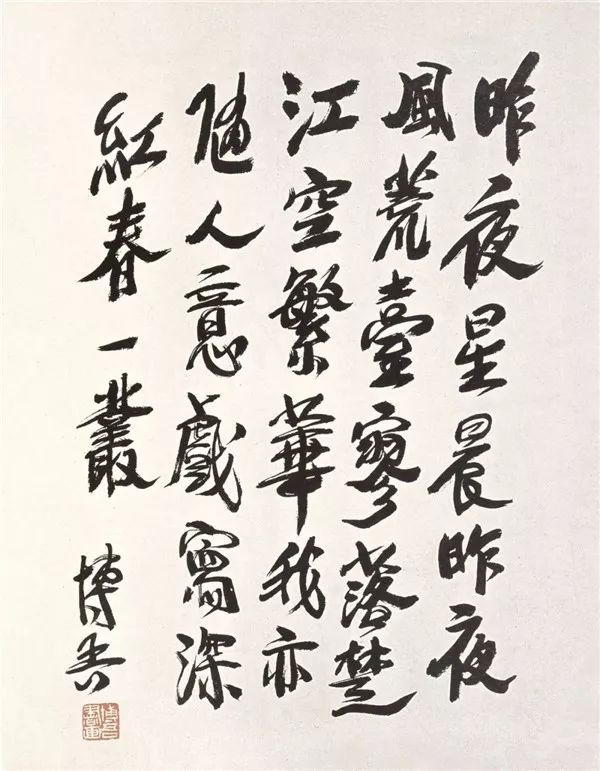 昨夜星晨昨夜
風荒臺寥落楚
江空繁華我亦
随人意戲寫深
紅春一叢
博